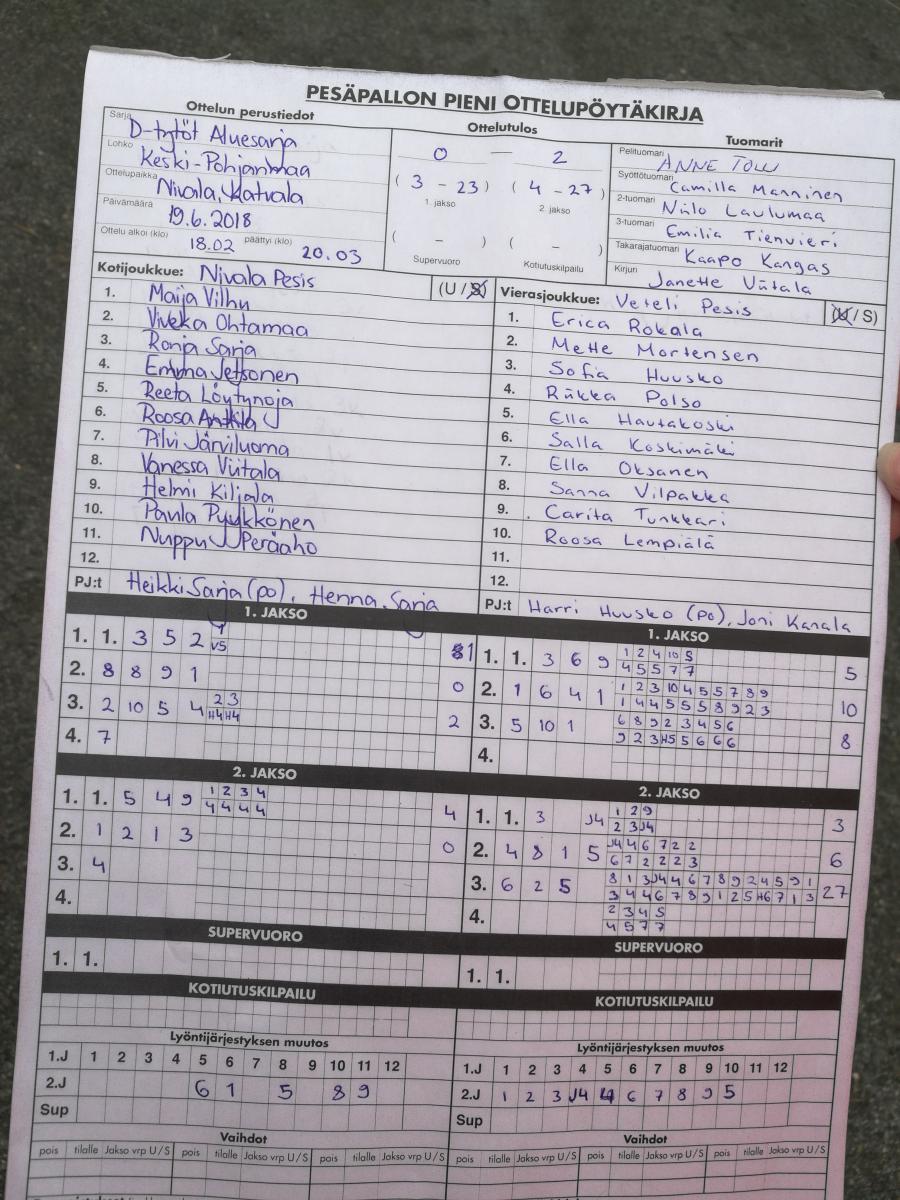 PESÄPALLON PIENI OTTELUPÖYTÄKIRJA
Ottelun perustiedot
Sarja D-tytöt Aluesarja
Lohko Keski-Pohjanmaa
Ottelupaikka Nivala, Katvala
Päivämäärä 19.6.2018
Ottelu alkoi (klo) 18.02 päättyi (klo) 20.03
Ottelutulos
0 — 2
( 3 - 23 ) ( 4 - 27 )
1. jakso 2. jakso
( - ) ( - )
Supervuoro Kotiutuskilpailu
Tuomarit
Pelituomari ANNE TOLU
Syöttötuomari Camilla Manninen
2-tuomari Niilo Laulumaa
3-tuomari Emilia Tienvieri
Takarajatuomari Kaapo Kangas
Kirjuri Janette Viitala
Kotijoukkue: Nivala Pesis (U / S)
1. Maija Vilhu
2. Viveka Ohtamaa
3. Ronja Sarja
4. Emma Jetsonen
5. Reeta Löytynoja
6. Roosa Anttila
7. Pilvi Järviluoma
8. Vanessa Viitala
9. Helmi Kiljala
10. Paula Pyykkönen
11. Nuppu Peräaho
12.
PJ:t Heikki Sarja (po), Henna Sarja
Vierasjoukkue: Veteli Pesis (U / S)
1. Erica Rokala
2. Mette Mortensen
3. Sofia Huusko
4. Riikka Polso
5. Ella Hautakoski
6. Salla Koskimäki
7. Ella Oksanen
8. Sanna Vilpakka
9. Carita Tunkkari
10. Roosa Lempiälä
11.
12.
PJ:t Harri Huusko (po), Joni Kanala
1. JAKSO
1. 1. 3 5 2 1
V5
2. 8 8 9 1 0
3. 2 10 5 4 2 3 2
H4 H4
4. 7
1. JAKSO
1. 1. 3 6 9 1 2 4 10 5 5
4 5 5 7 7
2. 1 6 4 1 1 2 3 10 4 5 5 7 8 9 10
1 4 4 5 5 5 8 9 2 3
3. 5 10 1 6 8 9 2 3 4 5 6 8
9 2 3 H5 5 6 6 6
4.
2. JAKSO
1. 1. 5 4 9 1 2 3 4 4
4 4 4 4
2. 1 2 1 3 0
3. 4
4.
2. JAKSO
1. 1. 3 J4 1 2 9 3
2 3 J4
2. 4 8 1 5 J4 4 6 7 2 2 6
6 7 2 2 2 3
3. 6 2 5 8 1 3 J4 4 6 7 8 9 2 4 5 9 1 27
3 4 4 6 7 8 9 1 2 5 H6 7 1 3
4. 2 3 4 5
4 5 7 7
SUPERVUORO
1. 1.
SUPERVUORO
1. 1.
KOTIUTUSKILPAILU
KOTIUTUSKILPAILU
Lyöntijärjestyksen muutos
1.J 1 2 3 4 5 6 7 8 9 10 11 12
2.J 6 1 5 8 9
Sup
Lyöntijärjestyksen muutos
1.J 1 2 3 4 5 6 7 8 9 10 11 12
2.J 1 2 3 J4 4 6 7 8 9 5
Sup
Vaihdot
pois tilalle Jakso vrp U/S pois tilalle Jakso vrp U/S pois tilalle Jakso vrp U/S
Vaihdot
pois tilalle Jakso vrp U/S pois tilalle Jakso vrp U/S pois tilalle Jakso vrp U/S